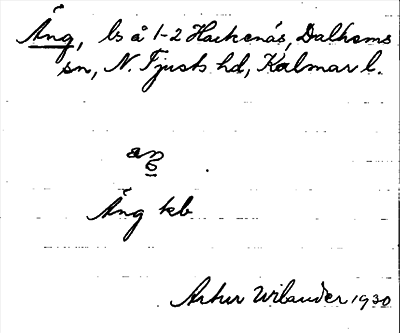 Äng, ls å 1-2 Hackenäs, Dalhems
sn, N. Tjusts hd, Kalmar l.
Äng kb
Artur Wilander 1930